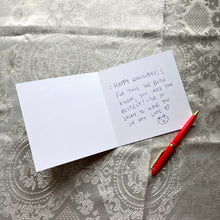 HAPPY HOLIDAYS!
FOR THIS WE BOTH
KNOW, YOU ARE THE
BESTEST! I'M SO
LUCKY TO HAVE YOU
IN MY LIFE